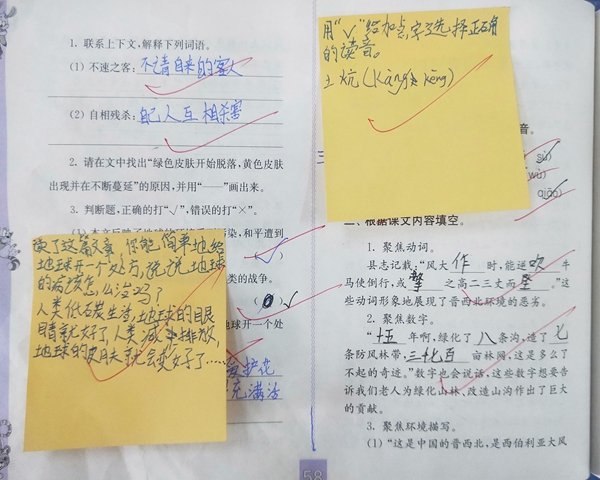 1. 联系上下文,解释下列词语。
(1) 不速之客:不请自来的客人
(2) 自相残杀:自己人互相杀害
2. 请在文中找出“绿色皮肤开始脱落,黄色皮肤
出现并在不断蔓延”的原因,并用“——”画出来。
3. 判断题,正确的打“√”,错误的打“×”。
,和平遭到
(√)
类的战争。
球开一个处
爱护花
充满活
读了这篇文章 你能简单地给
地球开一个处方,说说地球
的病该怎么治吗?
人类低碳生活,地球的眼
睛就好了,人类减事排放,
地球的皮肤就会变好了……
用“√”给加点字选择正确
的读音。
土炕(Kàng√ kēng)
音。
sù)
wù)
qiāo)
二、根据课文内容填空。
1. 聚焦动词。
县志记载:“风大作时,能逆吹牛
马使倒行,或擎之高二三丈而坠。”这
些动词形象地展现了晋西北环境的恶劣。
2. 聚焦数字。
“十五年啊,绿化了八条沟,造了七
条防风林带,三千七百亩林网,这是多么了
不起的奇迹。”数字也会说话,这些数字想要告
诉我们老人为绿化山林、改造山沟作出了巨大
的贡献。
3. 聚焦环境描写。
(1)“这是中国的晋西北,是西伯利亚大风
58